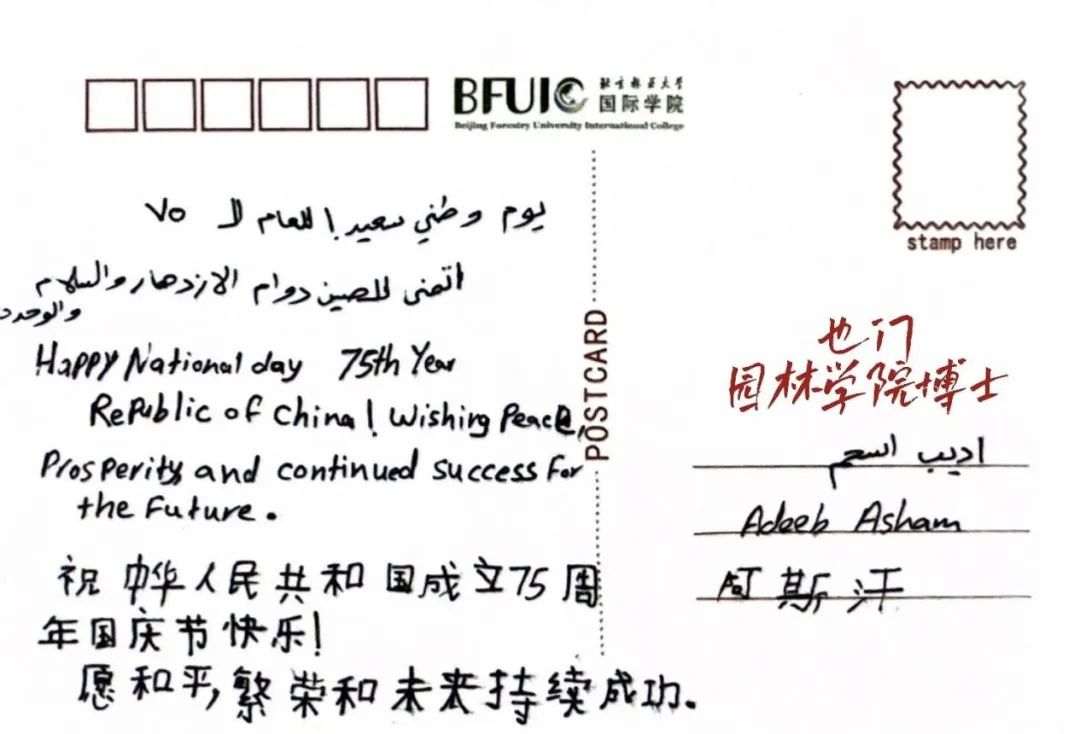 BFUIC 北京林业大学
国际学院
Beijing Forestry University International College
يوم وطني سعيد! للعام الـ ٧٥
اتمنى للصين دوام الازدهار والسلام
Happy National day 75th Year
Republic of China! Wishing Peace,
Prosperity, and continued success for
the Future.
祝中华人民共和国成立75周
年国庆节快乐!
愿和平,繁荣和未来持续成功.
POSTCARD
stamp here
也门
园林学院博士
اديب
Adeeb Asham
阿斯汗